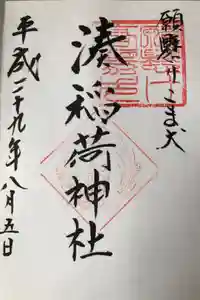 願懸けこま犬
湊稲荷神社
平成二十九年八月五日